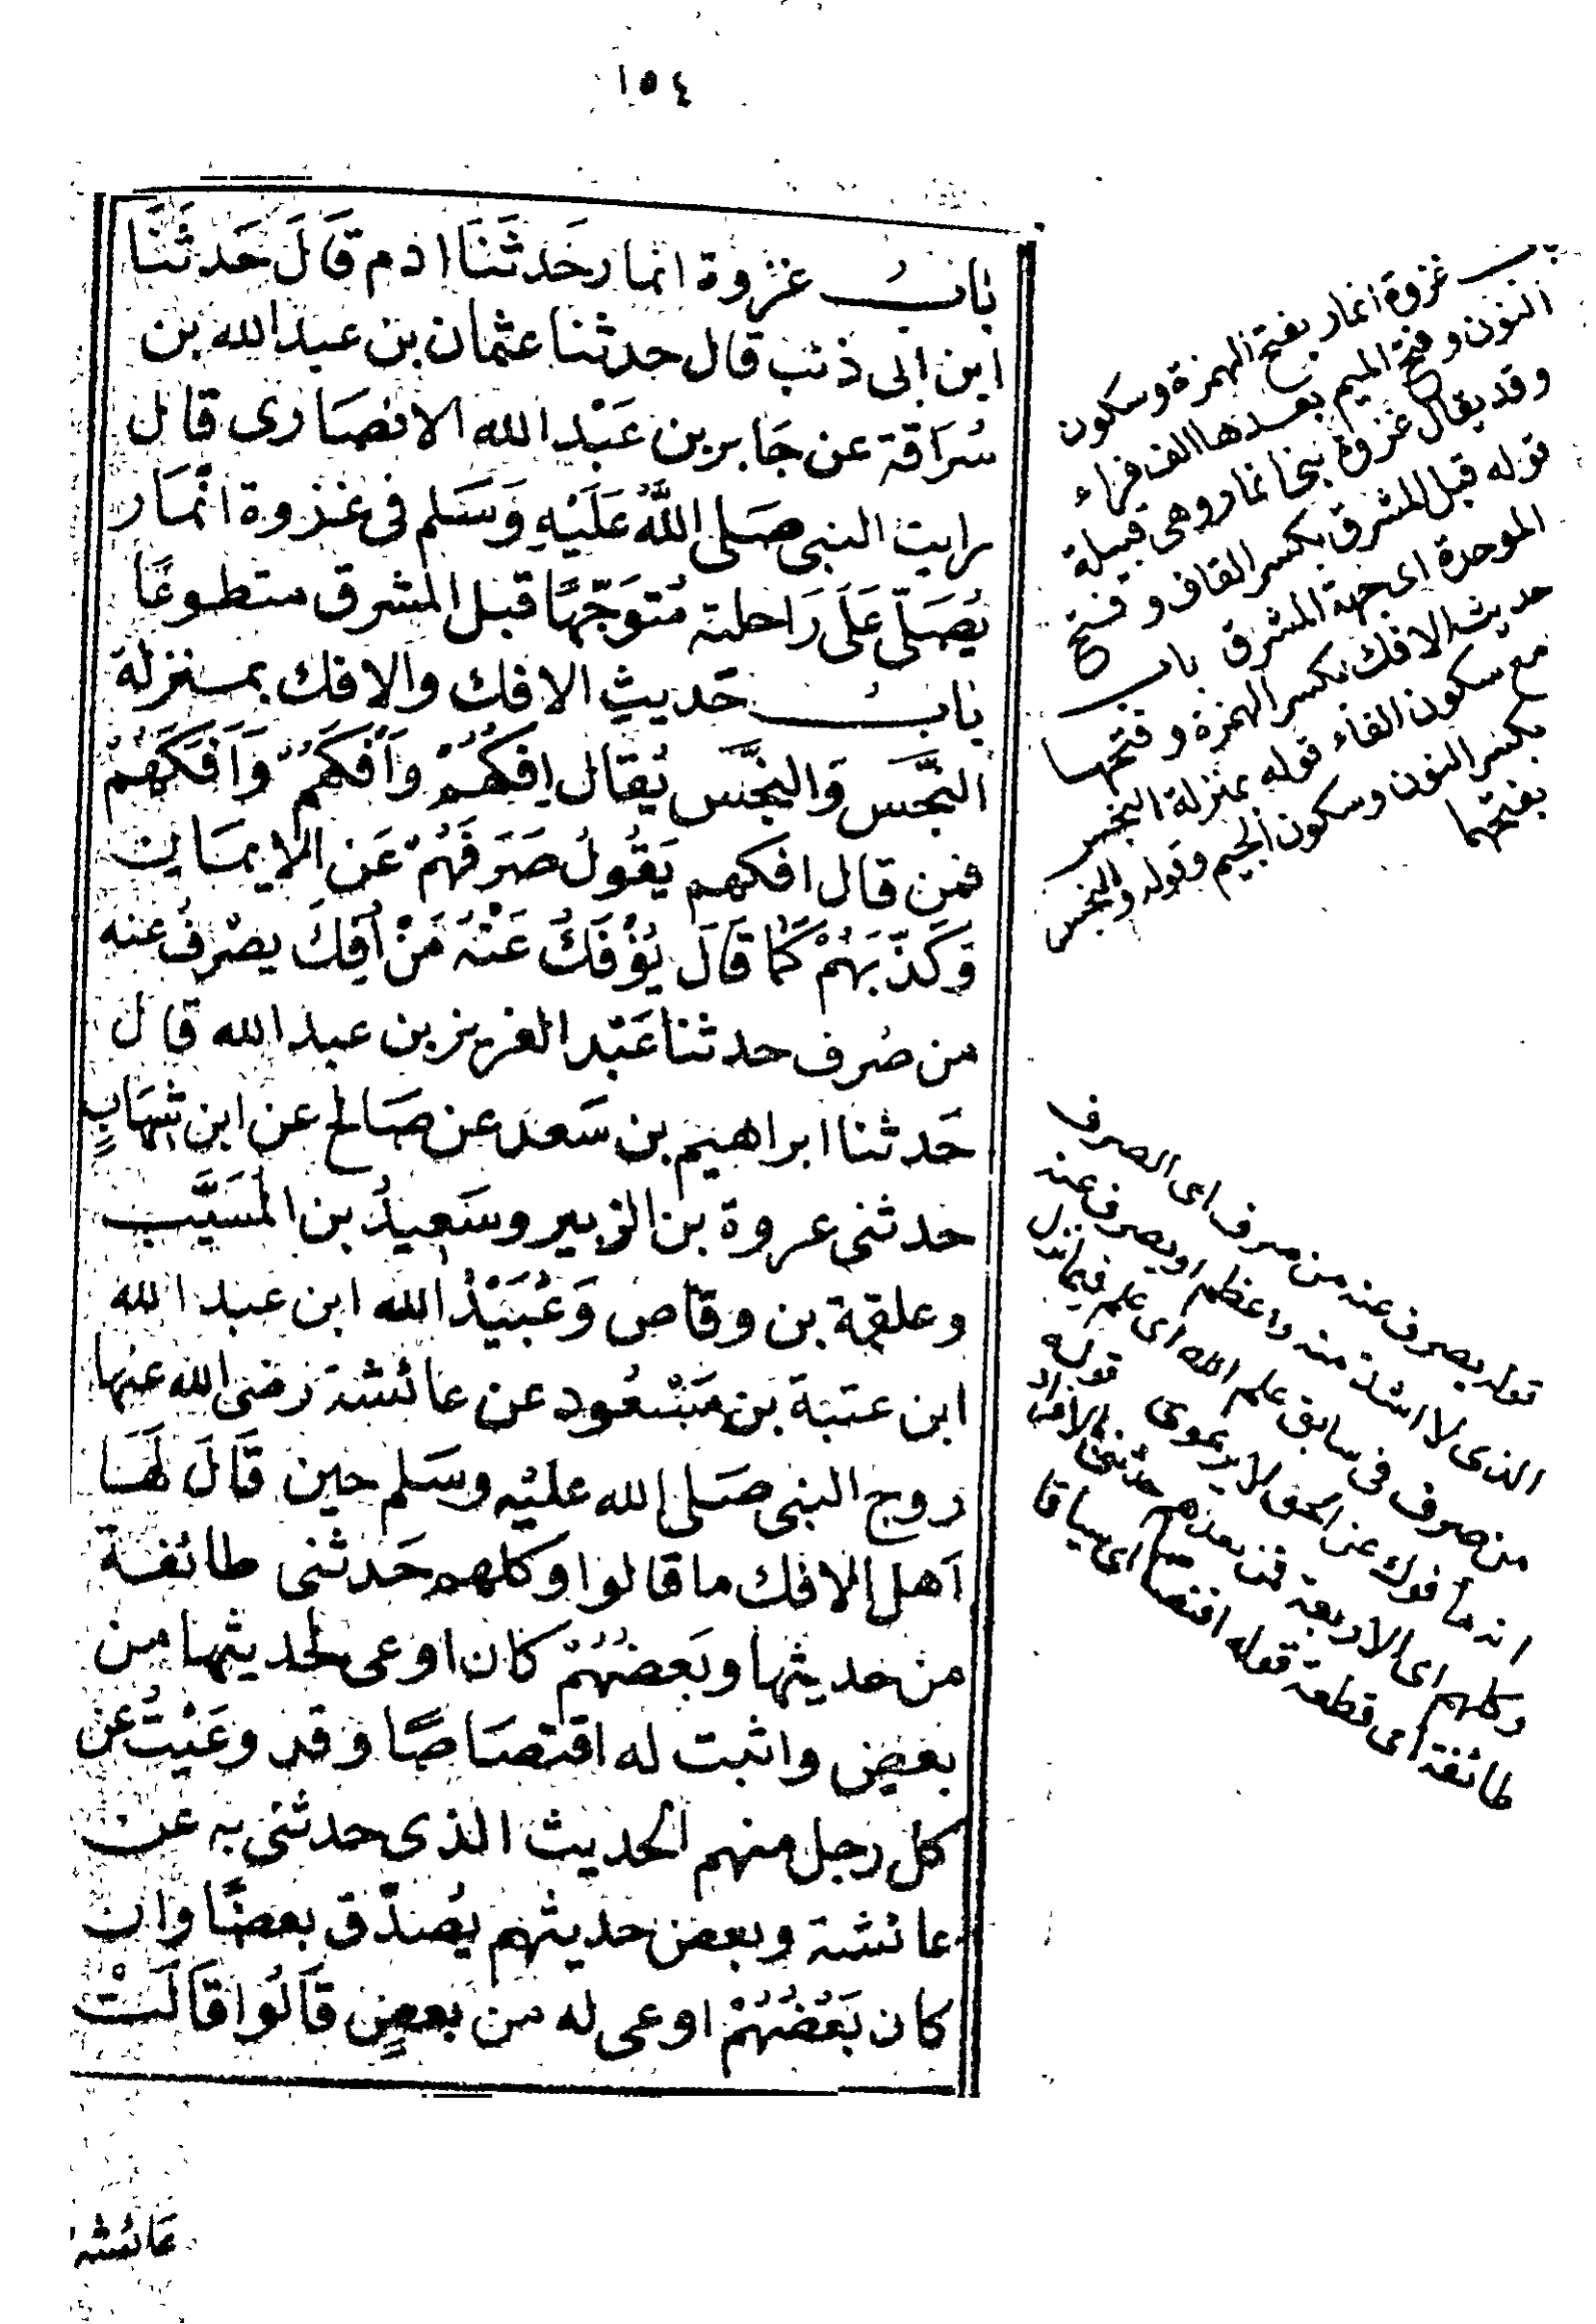 ١٥٤
باب غزوة انمار حَدثَنَا ادم قَالَ حَدثَنَا
ابن ابى ذئب قال حدثنا عثمان بن عبد الله بن
سُرَاقة عن جَابر بن عَبْد الله الانصَارى قال
رايت النبى صَلى اللهُ عَلَيْهِ وَسَلم فى غزوة انْمَار
يُصَلّى عَلَى رَاحلته مُتوَجّهًا قبل المشرق متطوعًا
بابُ حَديثِ الافك والافك بمنزلة
النِّجْس وَالنَّجَس يُقال اِفكُهُمْ وَاَفْكَهُمْ وَاَفَكَهُمْ
فمن قال افكهم يَقُولُ صَرَفَهُمْ عَن الايمَان
وَكَذّبَهُمْ كَمَا قَالَ يُؤْفَكُ عَنْهُ مَنْ اُفِكَ يصْرفُ عنه
من صُرف حدثنا عَبْد العزيز بن عبد الله قال
حَدثنا ابراهيم بن سَعد عن صَالح عن ابن شِهَابٍ
حدثنى عروة بن الزبير وسَعيدُ بن المسَيَّب
وعلقمة بن وقاص وَعُبَيْدُ الله ابن عبد الله
ابن عتبة بن مَسْعُود عن عائشة رضى الله عنها
زوج النبى صَلى الله عليْه وسَلم حين قَالَ لَهَا
اَهل الافك ما قالوا وكلهم حَدثنى طائفة
من حديثها وبَعضُهُمْ كان اوعى لحديثها من
بعض واثبت له اقتصَاصًا وقد وعَيْتُ عن
كل رجل منهم الحديث الذى حدثنى به عن
عائشة وبعض حديثهم يُصَدّق بعضًا وان
كان بَعْضُهُمْ اوعى له من بعضٍ قَالُوا قَالَتْ
عائشة
باب غزوة انمار بفتح الهمزة وسكون
النون وفتح الميم بعدها الف فراء
وقد يقال غزوة بنى انمار وهى قبيلة
قوله قبل المشرق بكسر القاف وفتح
الموحدة اى جهة المشرق باب
حديث الافك بكسر الهمزة وفتحها
مع سكون الفاء قوله بمنزلة النجس
بكسر النون وسكون الجيم وقوله والنجس
بفتحهما
قوله يصرف عنه من صرف اى الصرف
الذى لا اشد منه واعظم او يصرف عنه
من صرف فى سابق علم الله اى علم فيما لم يزل
انه مأفوك عن الحق لا يرعوى قوله
وكلهم اى الاربعة فمن بعدهم حدثنى
طائفة اى قطعة قوله اقتصاصا اى سياقا